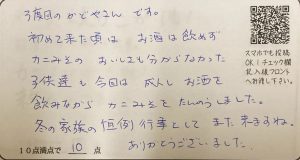 3度目のかどやさん です。
初めて来た頃は お酒は飲めず
カニみその おいしさも分からなかった
子供達も今回は 成人し お酒を
飲みながら カニみそを たんのうしました。
冬の家族の恒例行事として また来ますね。
ありがとうございました。
10点満点で 10 点
スマホでも投稿
OK!チェック欄
記入後フロント
へお渡し下さい。